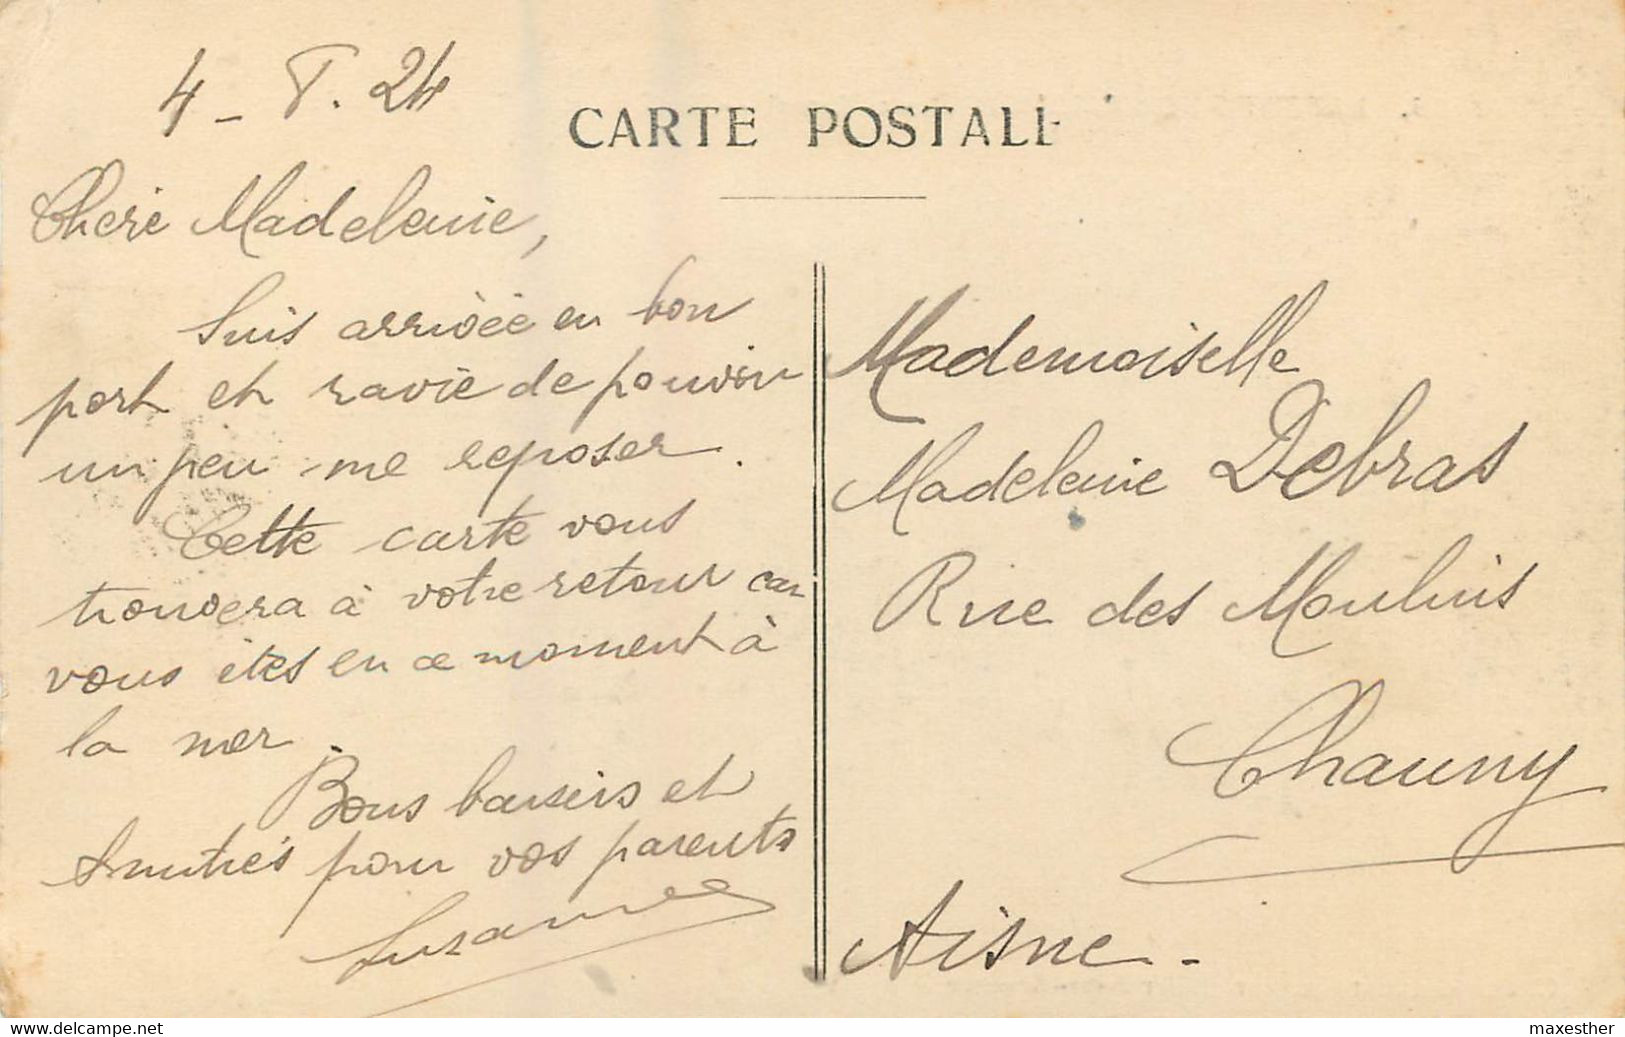 4 - 8. 24
CARTE POSTALE
Chère Madeleine,
Suis arrivée en bon
port et ravie de pouvoir
un peu me reposer.
Cette carte vous
trouvera à votre retour car
vous êtes en ce moment à
la mer.
Bons baisers et
Amitiés pour vos parents
Suzanne
Mademoiselle
Madeleine Debras
Rue des Moulins
Chauny
Aisne -
www.delcampe.net
maxesther